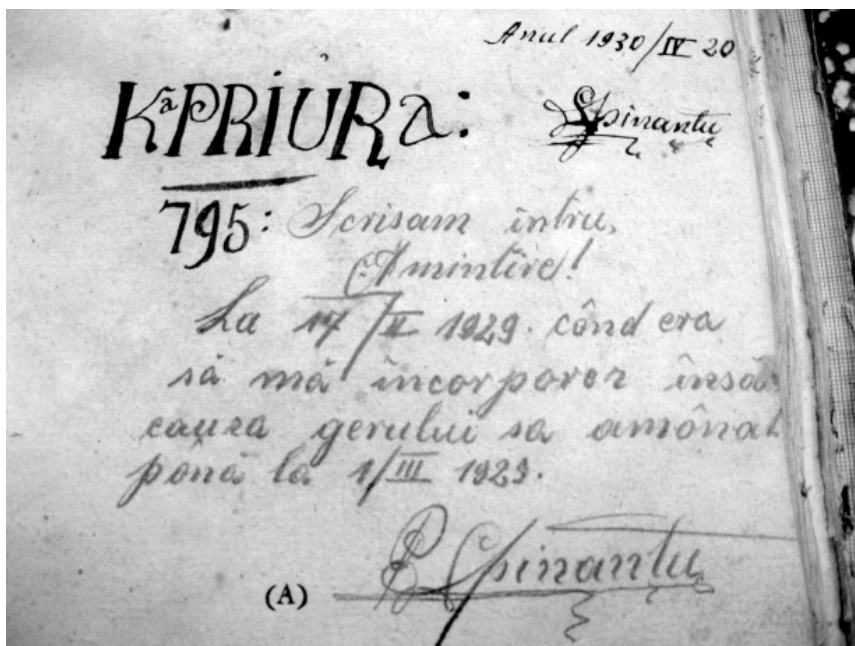 Anul 1930/IV 20
KªPRiURa:
Spinantu
795: Scrisam întru,
Amintire!
La 17/II 1929. când era
să mă incorporez însă
cauza gerului sa amânat
pănă la 1/III 1929.
Spinantu
(A)